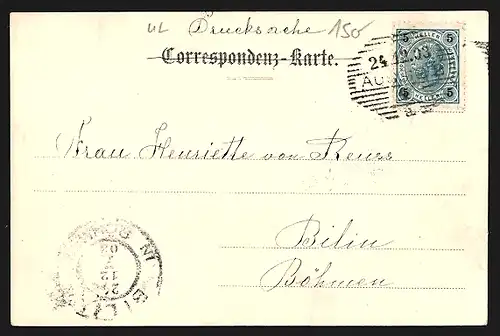 Drucksache 150
Correspondenz-Karte.
5 5
24.12.03
5 5
Frau Henriette von Reuss
Bilin
Böhmen